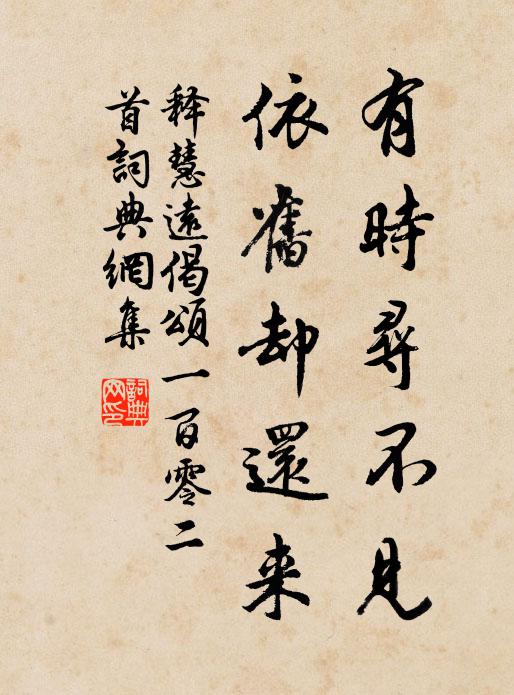 有時尋不見
依舊却還来
释慧遠偈頌一百零二
首詞典網集
詞典
网印